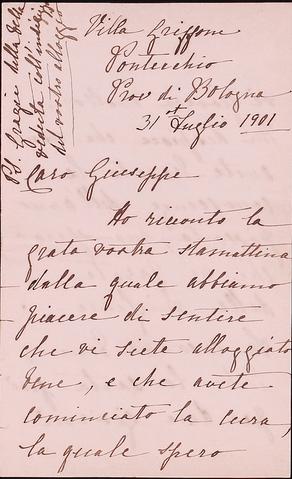 Villa Griffone
Pontecchio
Prov di Bologna
31st Luglio 1901
Caro Giuseppe
Ho ricevuto la
grata vostra stamattina
dalla quale abbiamo
piacere di sentire
che vi siete alloggiato
bene, e che avete
cominciato la cura,
la quale spero
PS. Grazie della bella
veduta coll'indirizzo
del vostro alloggio